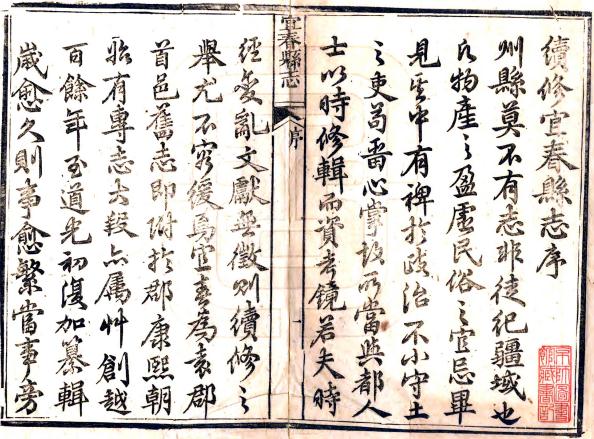 續修宜春縣志序
州縣莫不有志非徒紀疆域也
凡物產之盈虛民俗之宜忌畢
見其中有裨於政治不小守土
之吏苟留心掌故所當與都人
士以時修輯而資考鏡若夫時
宜春縣志
序
經變亂文獻無徵則續修之
舉尤不容緩焉宜春為袁郡
首邑舊志即附於郡康熙朝
始有專志大段亦屬艸創越
百餘年至道光初復加纂輯
歲愈久則事愈繁當事旁
京師圖書
館藏書記